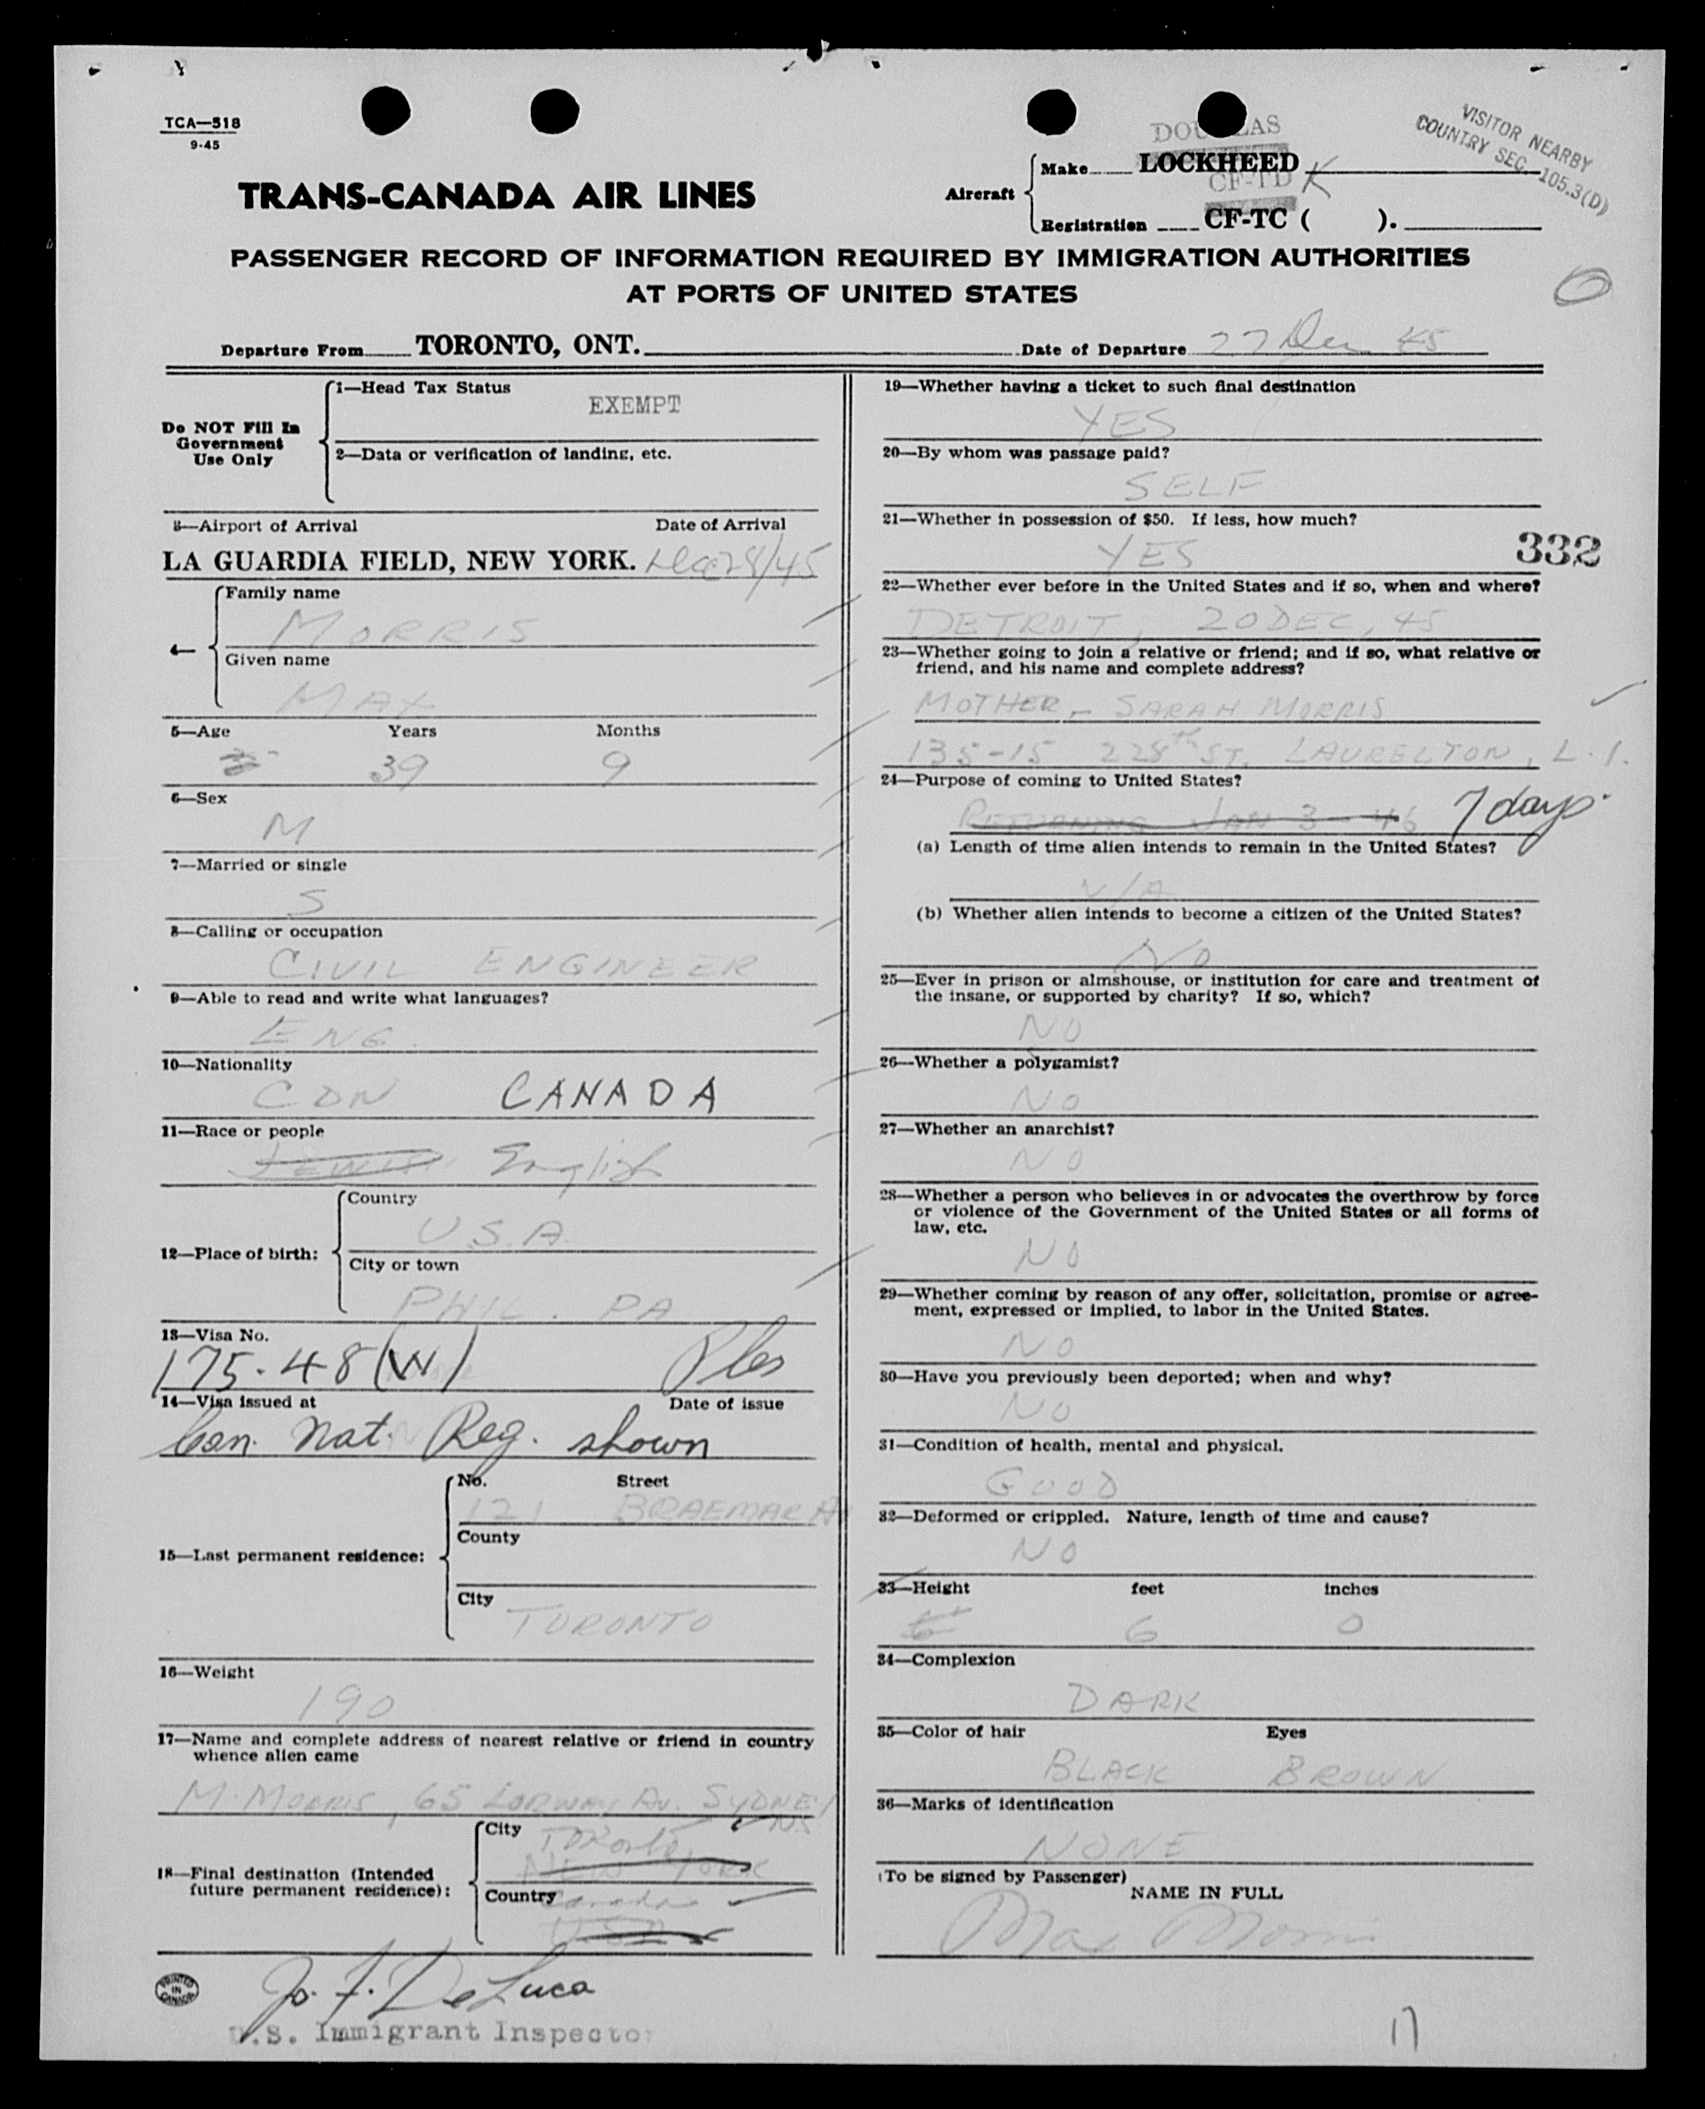 TCA—518
9-45
VISITOR NEARBY
COUNTRY SEC. 105.3(D)
DOUGLAS
Aircraft
Make LOCKHEED
CF-TD K
Registration CF-TC ( ).
TRANS-CANADA AIR LINES
PASSENGER RECORD OF INFORMATION REQUIRED BY IMMIGRATION AUTHORITIES
AT PORTS OF UNITED STATES
Departure From TORONTO, ONT. Date of Departure 27 Dec 45
Do NOT Fill In
Government
Use Only
1—Head Tax Status
EXEMPT
2—Data or verification of landing, etc.
3—Airport of Arrival Date of Arrival
LA GUARDIA FIELD, NEW YORK. Dec 28/45
4—
Family name
MORRIS
Given name
MAX
5—Age Years Months
39 9
6—Sex
M
7—Married or single
S
8—Calling or occupation
CIVIL ENGINEER
9—Able to read and write what languages?
ENG.
10—Nationality
CDN CANADA
11—Race or people
English
12—Place of birth:
Country
U.S.A.
City or town
PHIL. PA
13—Visa No.
175.48(W)
14—Visa issued at Date of issue
Can. Nat. Reg. shown
15—Last permanent residence:
No. Street
121 BRAEMAR AV
County
City
TORONTO
16—Weight
190
17—Name and complete address of nearest relative or friend in country
whence alien came
M. MORRIS, 65 AV. SYDNEY
NS
18—Final destination (Intended
future permanent residence):
City
Toronto
NEW YORK
Country
Canada
USA
Jo. F. De Luca
U.S. Immigrant Inspector
PRINTED
IN
CANADA
19—Whether having a ticket to such final destination
YES
20—By whom was passage paid?
SELF
21—Whether in possession of $50. If less, how much?
YES
332
22—Whether ever before in the United States and if so, when and where?
DETROIT, 20 DEC, 45
23—Whether going to join a relative or friend; and if so, what relative or
friend, and his name and complete address?
MOTHER – SARAH MORRIS
135-15 228th ST. LAURELTON, L.I.
24—Purpose of coming to United States?
RETURNING JAN 3-46 7 days.
(a) Length of time alien intends to remain in the United States?
N/A
(b) Whether alien intends to become a citizen of the United States?
NO
25—Ever in prison or almshouse, or institution for care and treatment of
the insane, or supported by charity? If so, which?
NO
26—Whether a polygamist?
NO
27—Whether an anarchist?
NO
28—Whether a person who believes in or advocates the overthrow by force
or violence of the Government of the United States or all forms of
law, etc.
NO
29—Whether coming by reason of any offer, solicitation, promise or agree-
ment, expressed or implied, to labor in the United States.
NO
30—Have you previously been deported; when and why?
NO
31—Condition of health, mental and physical.
GOOD
32—Deformed or crippled. Nature, length of time and cause?
NO
33—Height feet inches
6 0
34—Complexion
DARK
35—Color of hair Eyes
BLACK BROWN
36—Marks of identification
NONE
(To be signed by Passenger)
NAME IN FULL
Max Morris
17